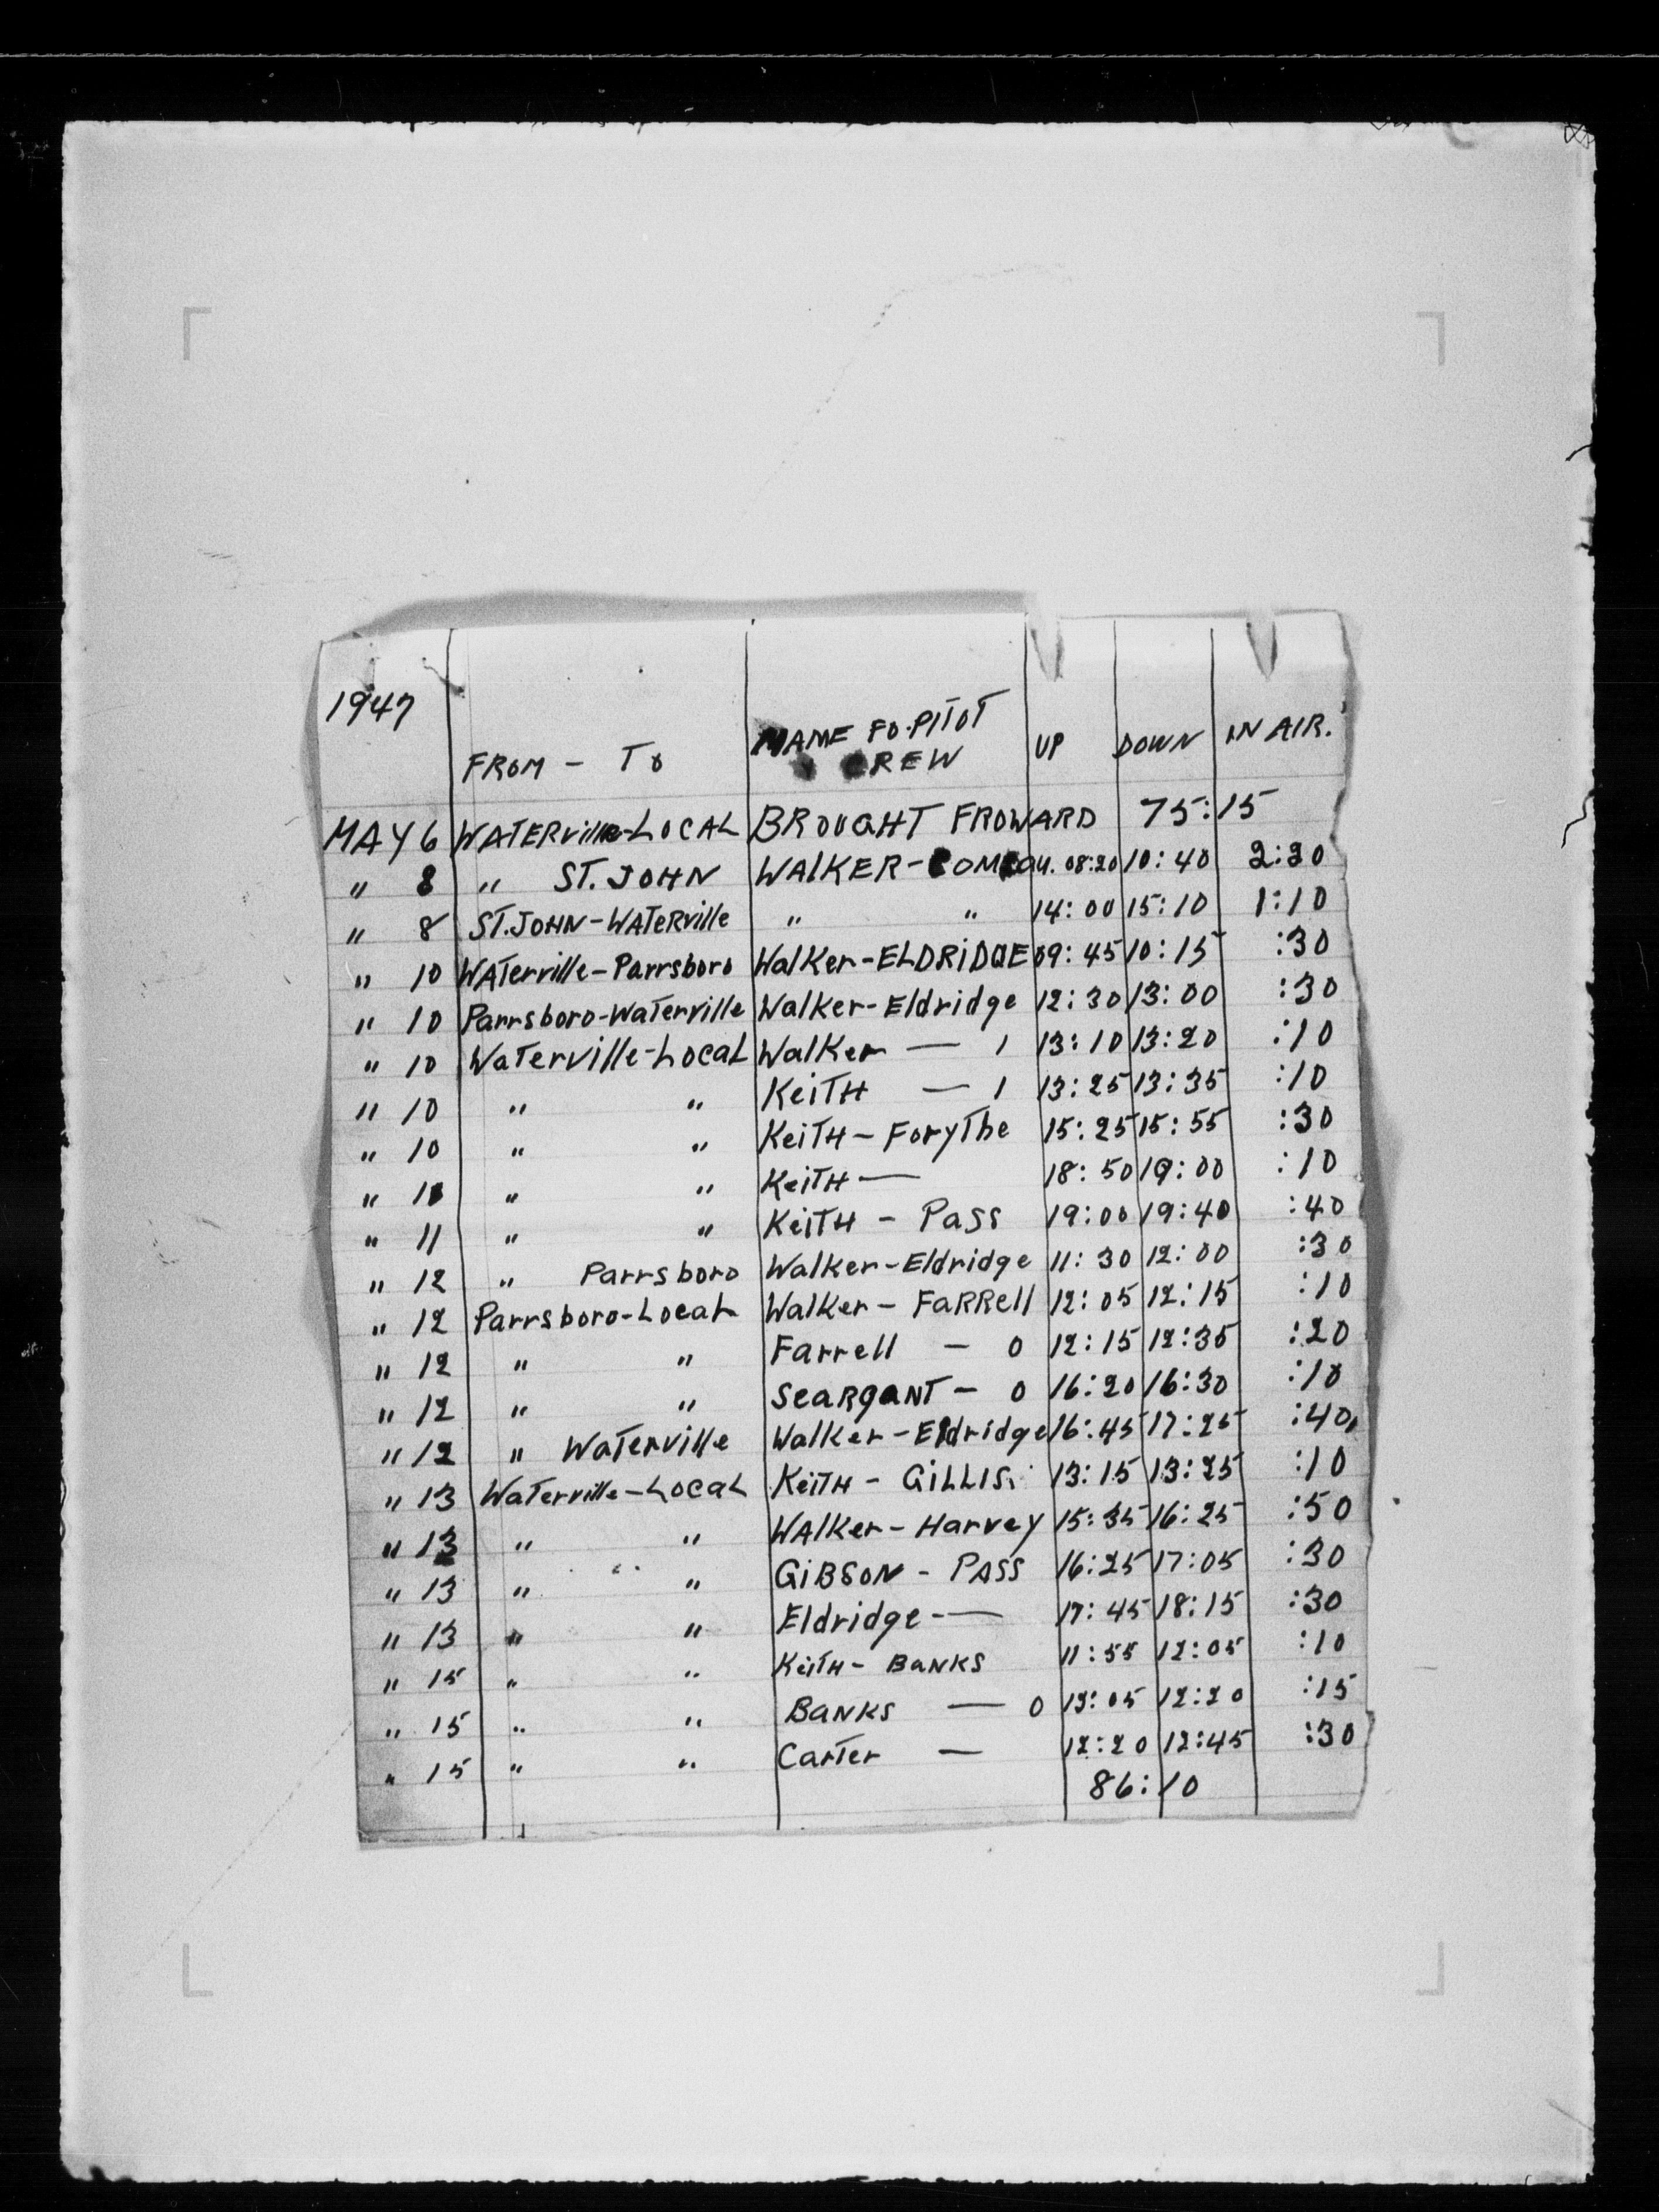 1947
FROM - TO NAME FO.PITOT CREW UP DOWN IN AIR.
MAY 6 WATERville-LOCAL BROUGHT FROWARD 75:15
" 8 " ST. JOHN WALKER-COMEAU. 08:20 10:40 2:20
" 8 ST.JOHN-WATERville " " 14:00 15:10 1:10
" 10 WATerville-Parrsboro Walker-ELDRIDGE 09:45 10:15 :30
" 10 Parrsboro-Waterville Walker-Eldridge 12:30 13:00 :30
" 10 Waterville-Local Walker — 1 13:10 13:20 :10
" 10 " " KeiTH — 1 13:25 13:35 :10
" 10 " " KeiTH - ForyThe 15:25 15:55 :30
" 11 " " KeiTH — 18:50 19:00 :10
" 11 " " KeiTH - Pass 19:00 19:40 :40
" 12 " Parrsboro Walker-Eldridge 11:30 12:00 :30
" 12 Parrsboro-Local Walker - FaRRell 12:05 12:15 :10
" 12 " " Farrell - 0 12:15 12:35 :20
" 12 " " SeaRgaNT - 0 16:20 16:30 :10
" 12 " Waterville Walker-Eldridge 16:45 17:25 :40
" 13 Waterville-Local KeiTH - GiLLIS. 13:15 13:25 :10
" 13 " " WAlker-Harvey 15:35 16:25 :50
" 13 " " GiBSON - PASS 16:25 17:05 :30
" 13 " " Eldridge - — 17:45 18:15 :30
" 15 " " KeiTH - BaNKS 11:55 12:05 :10
" 15 " " BaNKS — 0 12:05 12:20 :15
" 15 " " CarTer — 12:20 12:45 :30
86:10